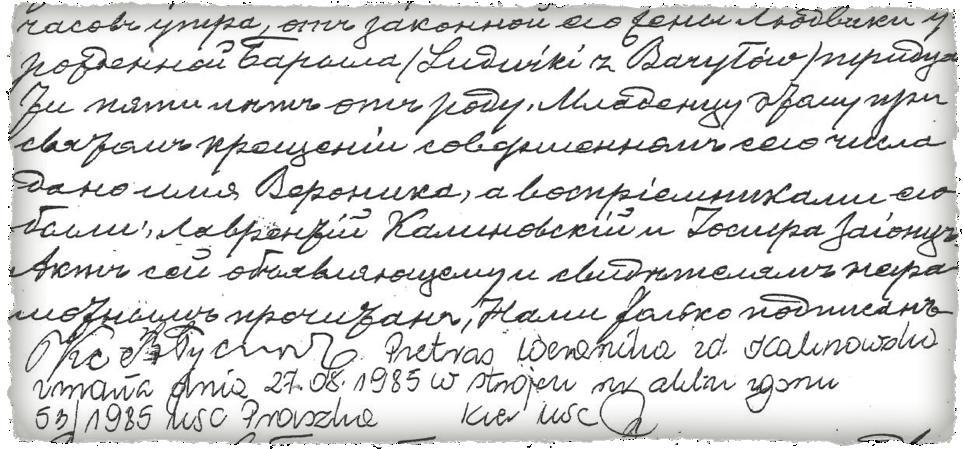 часовъ утра, отъ законной его жены Людвики у
рожденной Барыла (Ludwiki z Barytów) тридца
ти пяти лѣтъ отъ роду. Младенцу этому при
святомъ крещеніи совершенномъ сего числа
дано имя Вероника, а воспріемниками его
были: Лаврентій Калиновскій и Іосифа Заіонцъ.
Актъ сей объявляющему и свидѣтелямъ негра
мотнымъ прочитанъ, Нами только подписанъ
Pietras Weronika zd. Kalinowska
zmarła dnia 27.08.1985 w nr aktu zgonu
53/1985 USC Praszka Kier USC